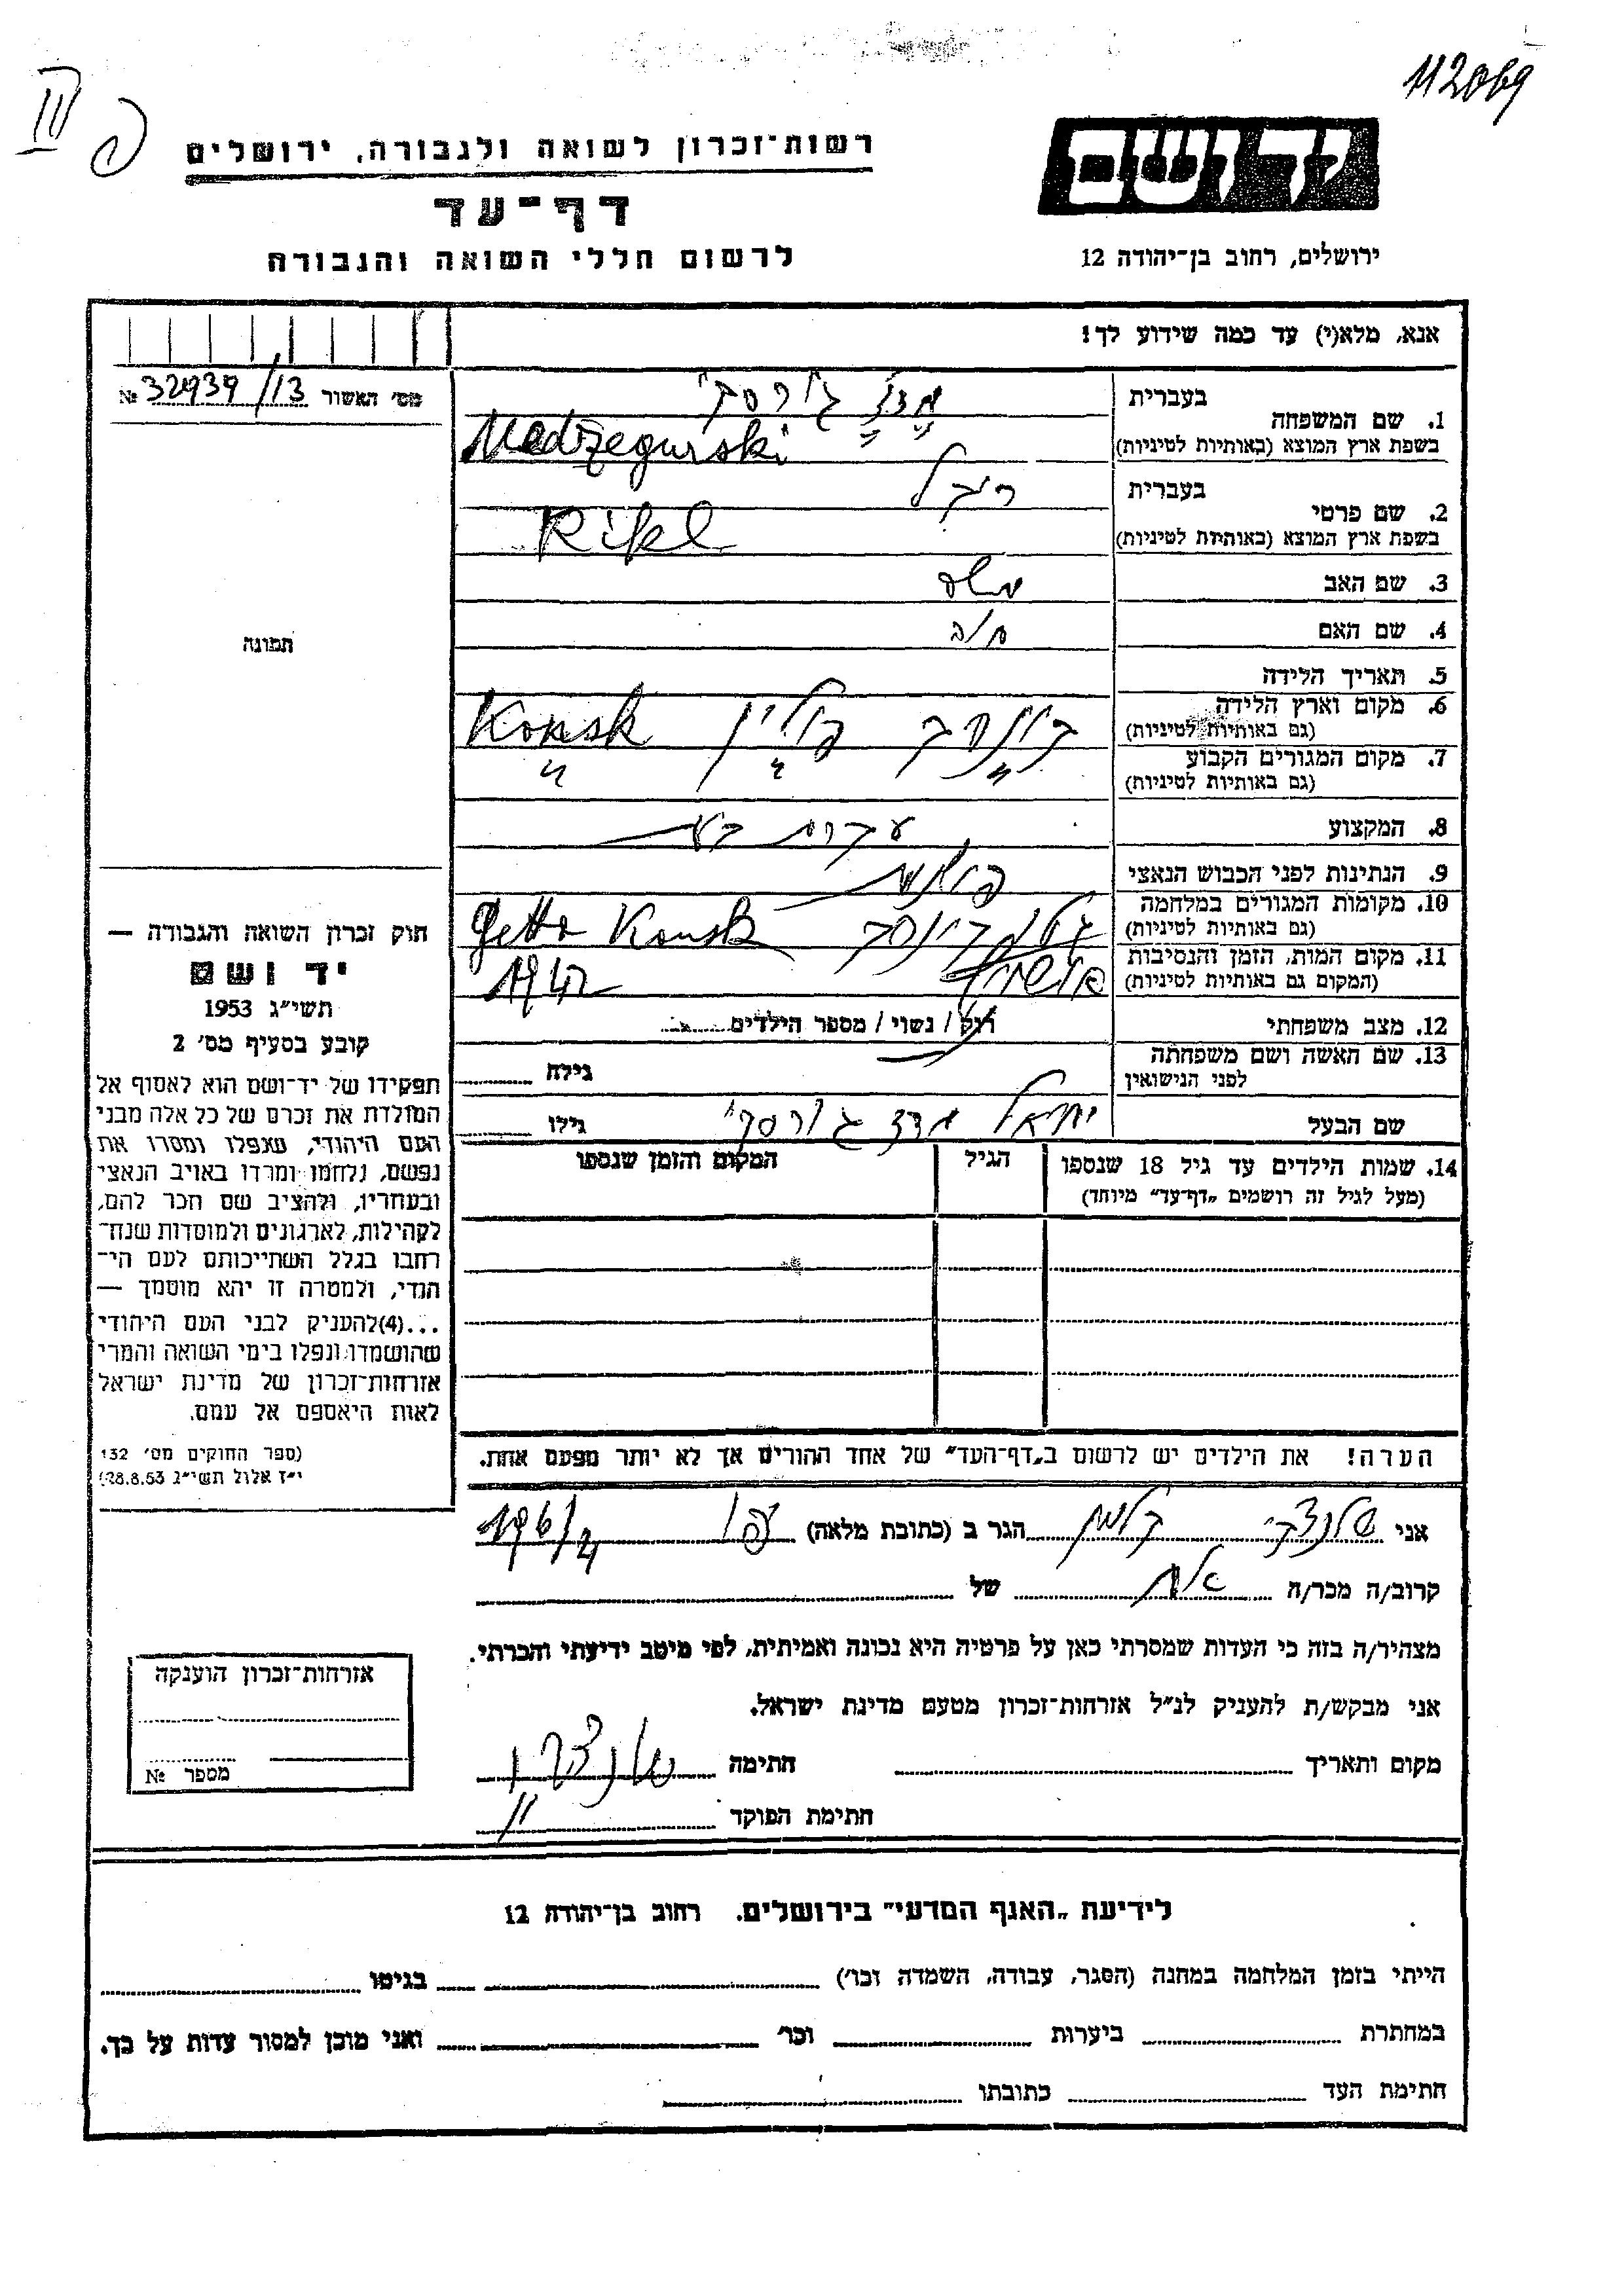 112069
III
רשות־זכרון לשואה ולגבורה, ירושלים
יד ושם
דף־עד
לרשום חללי השואה והגבורה
ירושלים, רחוב בן־יהודה 12
אנא, מלא(י) עד כמה שידוע לך!
מס׳ האשור 32939/13 №
1. שם המשפחה
בעברית
בשפת ארץ המוצא (באותיות לטיניות) Medrzegurski
2. שם פרטי
בעברית
בשפת ארץ המוצא (באותיות לטיניות) Rifel
3. שם האב משה
4. שם האם
5. תאריך הלידה
6. מקום וארץ הלידה
(גם באותיות לטיניות) קונסק פולין Konsk
7. מקום המגורים הקבוע
(גם באותיות לטיניות) " " "
8. המקצוע עקרת בית
9. הנתינות לפני הכבוש הנאצי פולנית
10. מקומות המגורים במלחמה
(גם באותיות לטיניות) גטו קונסק Getto Konsk
11. מקום המות, הזמן והנסיבות
(המקום גם באותיות לטיניות) 1942
12. מצב משפחתי רוק / נשוי / מספר הילדים
13. שם האשה ושם משפחתה
לפני הנישואין גילה
שם הבעל גילו
14. שמות הילדים עד גיל 18 שנספו
(מעל לגיל זה רושמים „דף־עד״ מיוחד)
הגיל
המקום והזמן שנספו
הערה! את הילדים יש לרשום ב„דף־העד״ של אחד ההורים אך לא יותר מפעם אחת.
תמונה
חוק זכרון השואה והגבורה —
יד ושם
תשי״ג 1953
קובע בסעיף מס׳ 2
תפקידו של יד־ושם הוא לאסוף אל
המולדת את זכרם של כל אלה מבני
העם היהודי, שנפלו ומסרו את
נפשם, נלחמו ומרדו באויב הנאצי
ובעוזריו, ולהציב שם וזכר להם,
לקהילות, לארגונים ולמוסדות שנח־
רחבו בגלל השתייכותם לעם הי־
הודי, ולמטרה זו יהא מוסמך —
...(4) להעניק לבני העם היהודי
שהושמדו ונפלו בימי השואה והמרי
אזרחות־זכרון של מדינת ישראל
לאות היאספם אל עמם.
(ספר החוקים מס׳ 132
י״ז אלול תשי״ג 28.8.53)
אני קלמן הגר ב (כתובת מלאה)
קרוב/ה מכר/ה של
מצהיר/ה בזה כי העדות שמסרתי כאן על פרטיה היא נכונה ואמיתית, לפי מיטב ידיעתי והכרתי.
אני מבקש/ת להעניק לנ״ל אזרחות־זכרון מטעם מדינת ישראל.
מקום ותאריך חתימה
חתימת הפוקד
אזרחות־זכרון הוענקה
מספר №
לידיעת „האגף המדעי״ בירושלים. רחוב בן־יהודה 12
הייתי בזמן המלחמה במחנה (הסגר, עבודה, השמדה וכו׳) בגיטו
במחתרת ביערות וכו׳ ואני מוכן למסור עדות על כך.
חתימת העד כתובתו